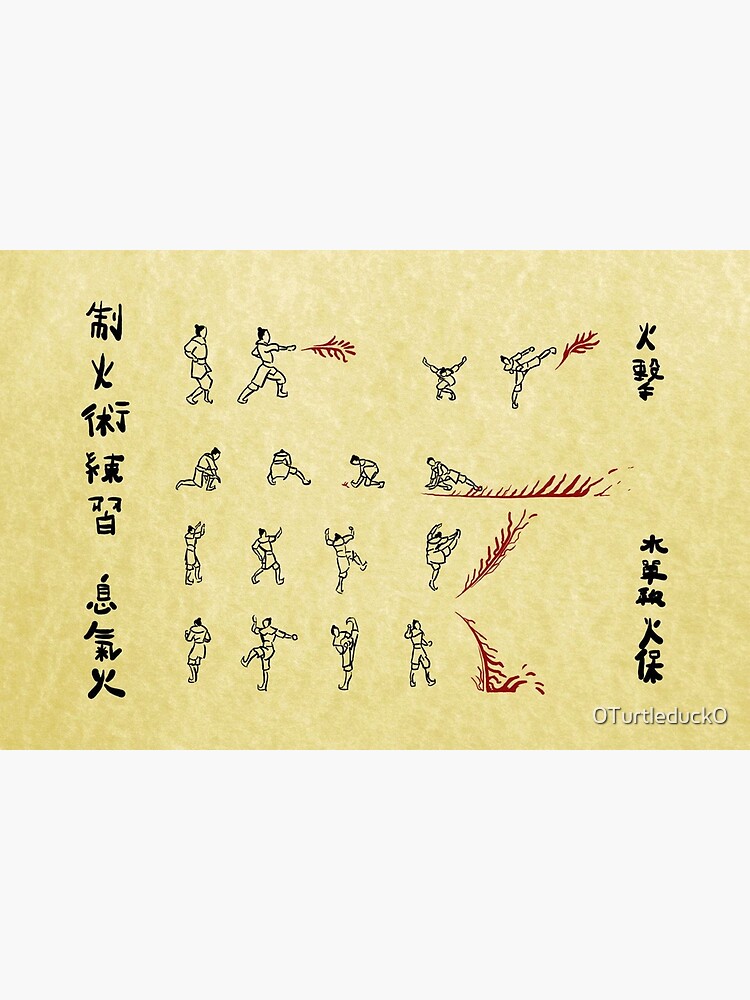 制火術練習 息氣火
火擊
水單报火保
OTurtleduckO